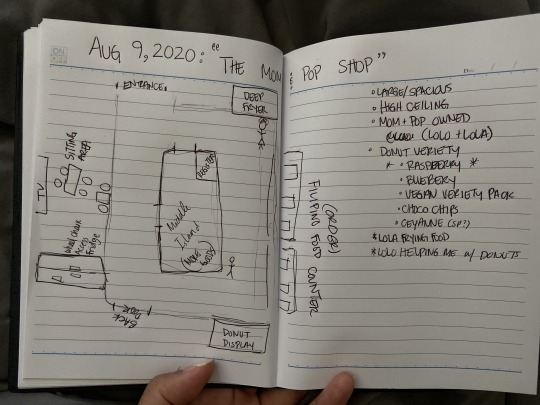 AUG 9, 2020: "THE MOM & POP SHOP"
ENTRANCE
DEEP FRYER
SITTING AREA
TV
REGISTER
Middle Island
(MORE FOOD)
Fridge
BACK DOOR
DONUT DISPLAY
FILIPINO FOOD COUNTER
(ORDER)
◦ LARGE/SPACIOUS
◦ HIGH CEILING
◦ MOM + POP OWNED
(LOLO + LOLA)
◦ DONUT VARIETY
* ◦ RASPBERRY *
◦ BLUEBERRY
◦ VEGAN VARIETY PACK
◦ CHOCO CHIPS
◦ CEYANNE (SP?)
* LOLA FRYING FOOD
* LOLO HELPING ME W/ DONUTS